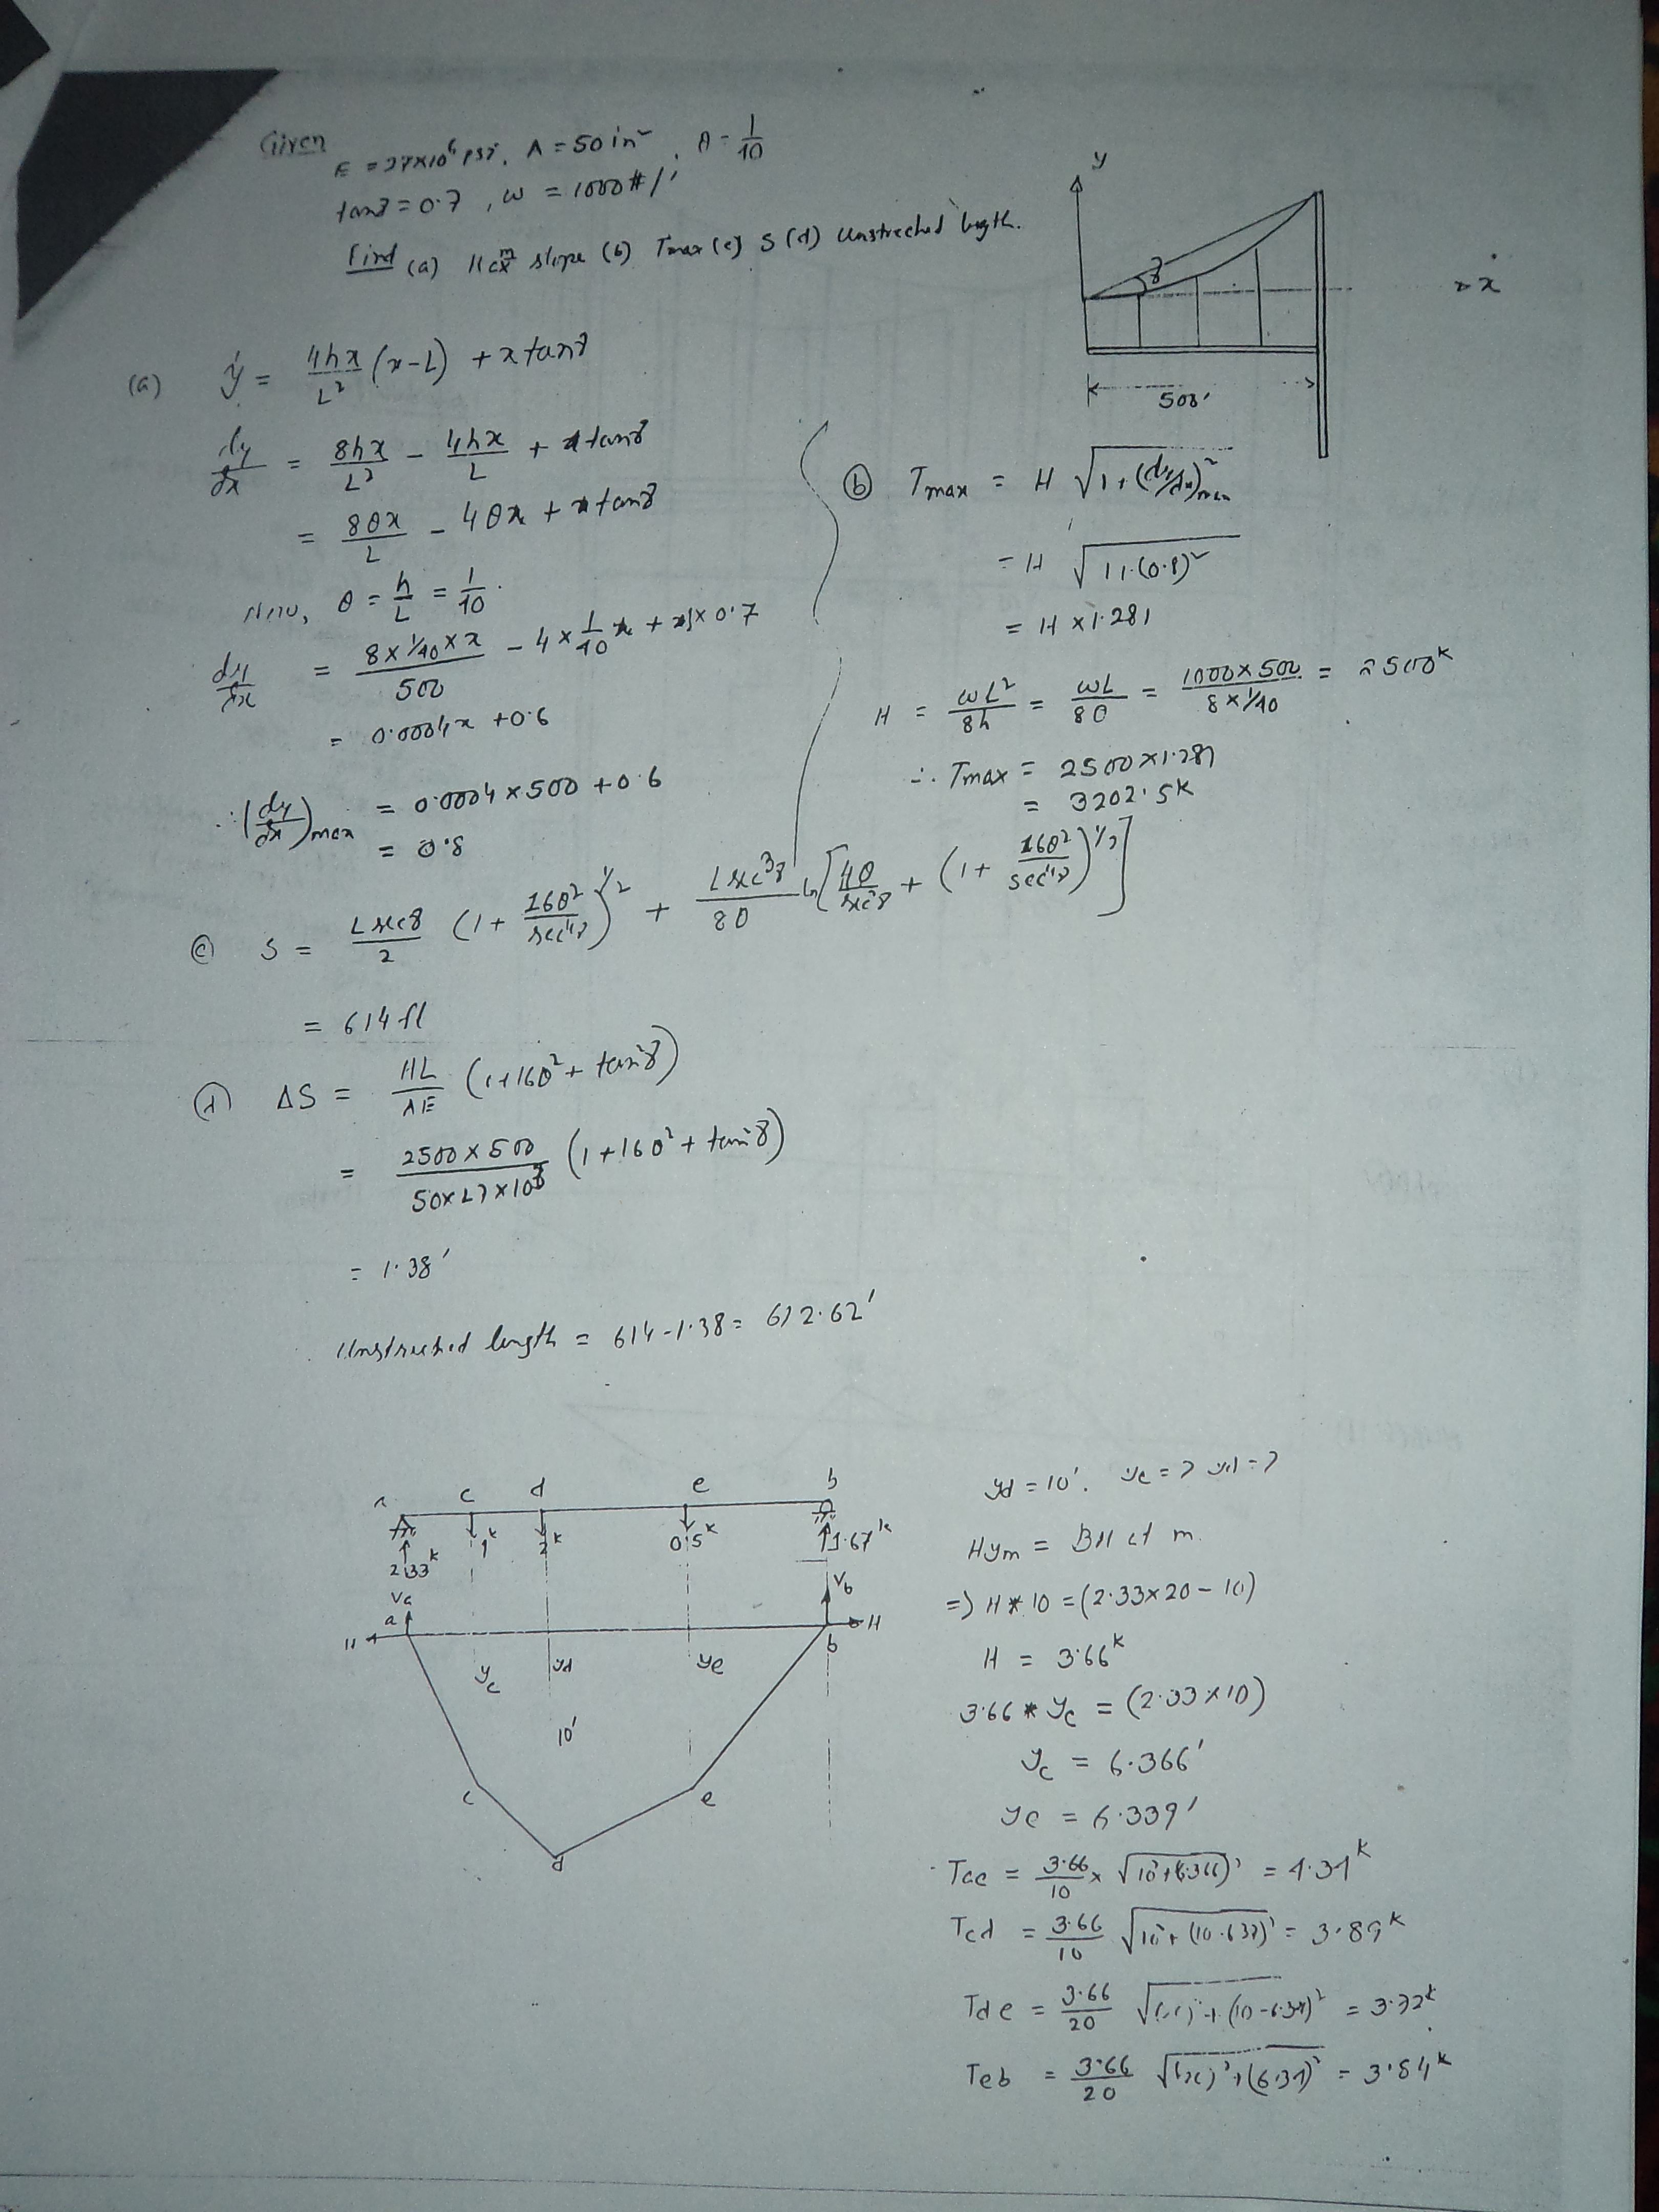 Given
E = 27×10⁶ psi, A = 50 in², θ = 1/10
tanγ = 0.7, w = 1000#/'
Find (a) slope (b) Tmax (c) S (d) Unstreched length.
y
γ
x
500'
(a) y = 4hx/L² (x-L) + x tanγ
dy/dx = 8hx/L² - 4hx/L + tanγ
= 8θx/L - 4θx + tanγ
Now, θ = h/L = 1/10
dy/dx = 8×1/10×x/500 - 4×1/10 + 1×0.7
= 0.0004x + 0.6
∴ (dy/dx)max = 0.0004×500 + 0.6
= 0.8
(b) Tmax = H √1+(dy/dx)²max
= H √1+(0.8)²
= H × 1.281
H = wL²/8h = wL/8θ = 1000×500/8×1/10 = 2500ᵏ
∴ Tmax = 2500×1.281
= 3202.5ᵏ
(c) S = L secγ/2 (1 + 16θ²/sec⁴γ)^1/2 + L sec³γ/8θ ln[4θ/sec²γ + (1 + 16θ²/sec⁴γ)^1/2]
= 614 ft
(d) ΔS = HL/AE (1+16θ²+tan²γ)
= 2500×500/50×27×10³ (1+16θ²+tan²γ)
= 1.38'
Unstreched length = 614-1.38 = 612.62'
a c d e b
1ᵏ 2ᵏ 0.5ᵏ
2.33ᵏ 1.67ᵏ
Va Vb
H a b H
yc yd ye
10'
c d e
yd = 10'. yc = ? yd = ?
Hym = BM at m.
=> H * 10 = (2.33×20-10)
H = 3.66ᵏ
3.66 * yc = (2.33×10)
yc = 6.366'
ye = 6.339'
Tac = 3.66/10 × √10²+(6.366)² = 4.34ᵏ
Tcd = 3.66/10 √10²+(10-6.37)² = 3.89ᵏ
Tde = 3.66/20 √(20)²+(10-6.34)² = 3.72ᵏ
Teb = 3.66/20 √(20)²+(6.34)² = 3.84ᵏ